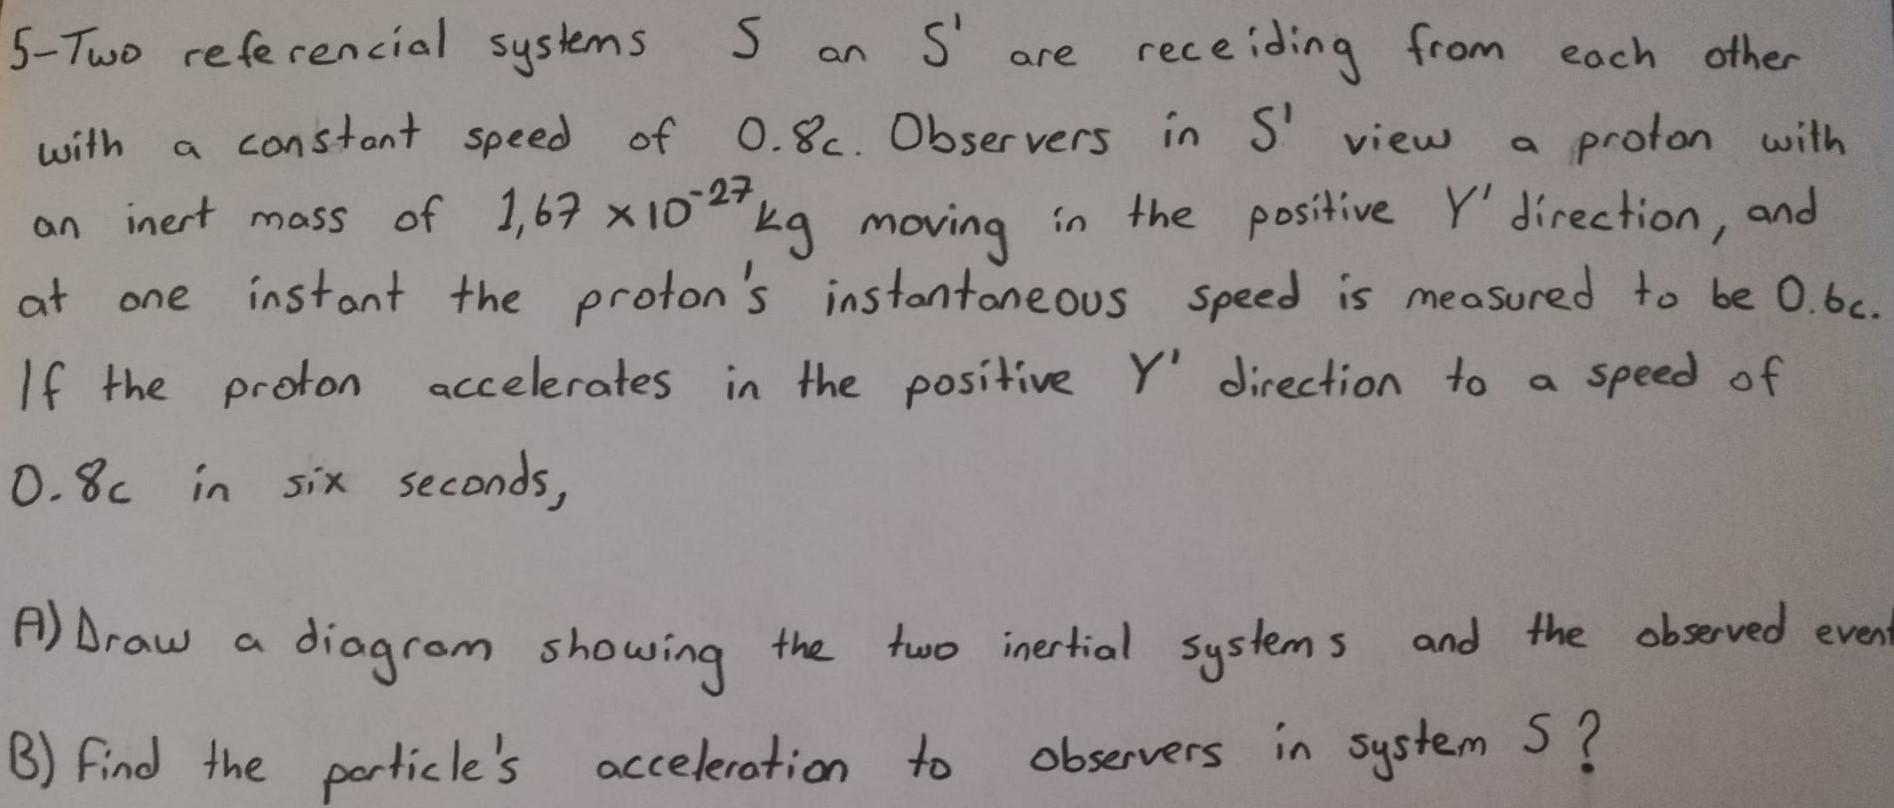 5-Two referencial systems S an S' are receiding from each other
with a constant speed of 0.8c. Observers in S' view a proton with
an inert mass of 1,67 ×10⁻²⁷kg moving in the positive Y' direction, and
at one instant the proton's instantaneous speed is measured to be 0.6c.
If the proton accelerates in the positive Y' direction to a speed of
0.8c in six seconds,
A) Draw a diagram showing the two inertial systems and the observed event
B) Find the particle's acceleration to observers in system S?